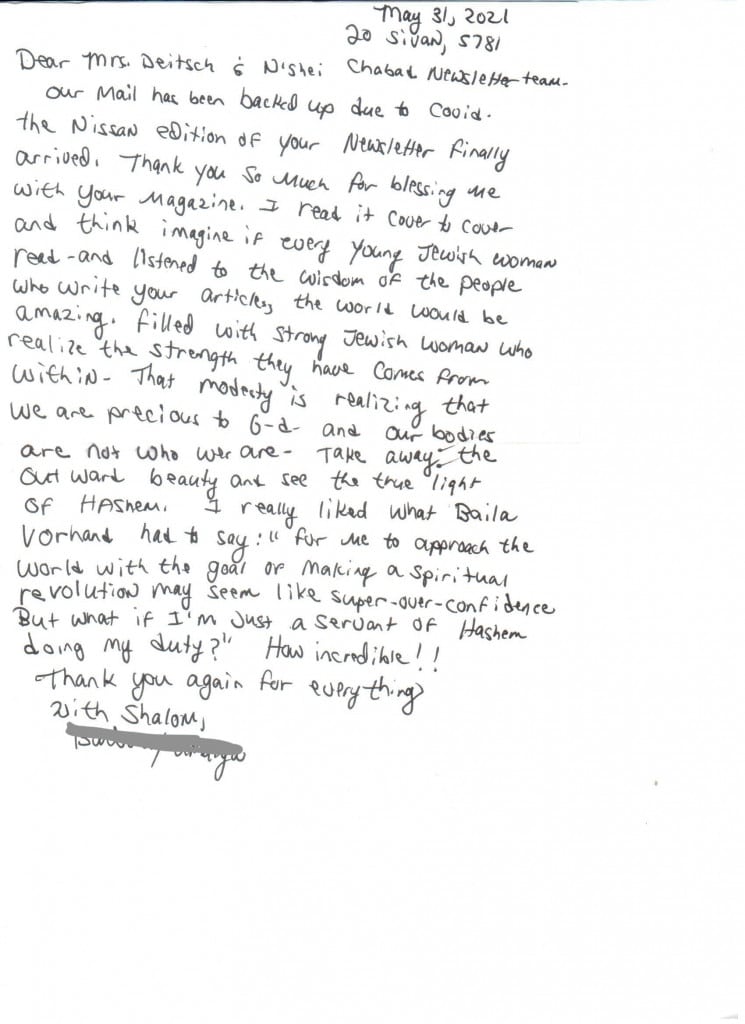 May 31, 2021
20 Sivan, 5781
Dear Mrs. Deitsch & N'shei Chabad Newsletter team-
Our Mail has been backed up due to Covid.
the Nissan edition of your Newsletter finally
arrived. Thank you so much for blessing me
with your Magazine. I read it cover to cover
and think imagine if every young Jewish woman
read-and listened to the wisdom of the people
who write your articles, the world would be
amazing. filled with strong Jewish woman who
realize the strength they have comes from
within- That modesty is realizing that
we are precious to G-d- and our bodies
are not who wer are- Take away the
out ward beauty and see the true light
of HAshem. I really liked what Baila
Vorhand had to say: "for me to approach the
world with the goal of making a spiritual
revolution may seem like super-over-confidence
But what if I'm Just a servant of Hashem
doing my duty?" How incredible!!
Thank you again for everything
With Shalom,